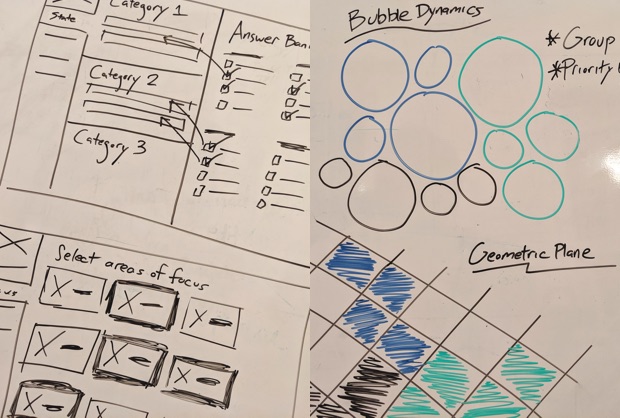 Category 1
State
Answer Ban
Category 2
Category 3
Select areas of focus
Bubble Dynamics
* Group
* Priority
Geometric Plane